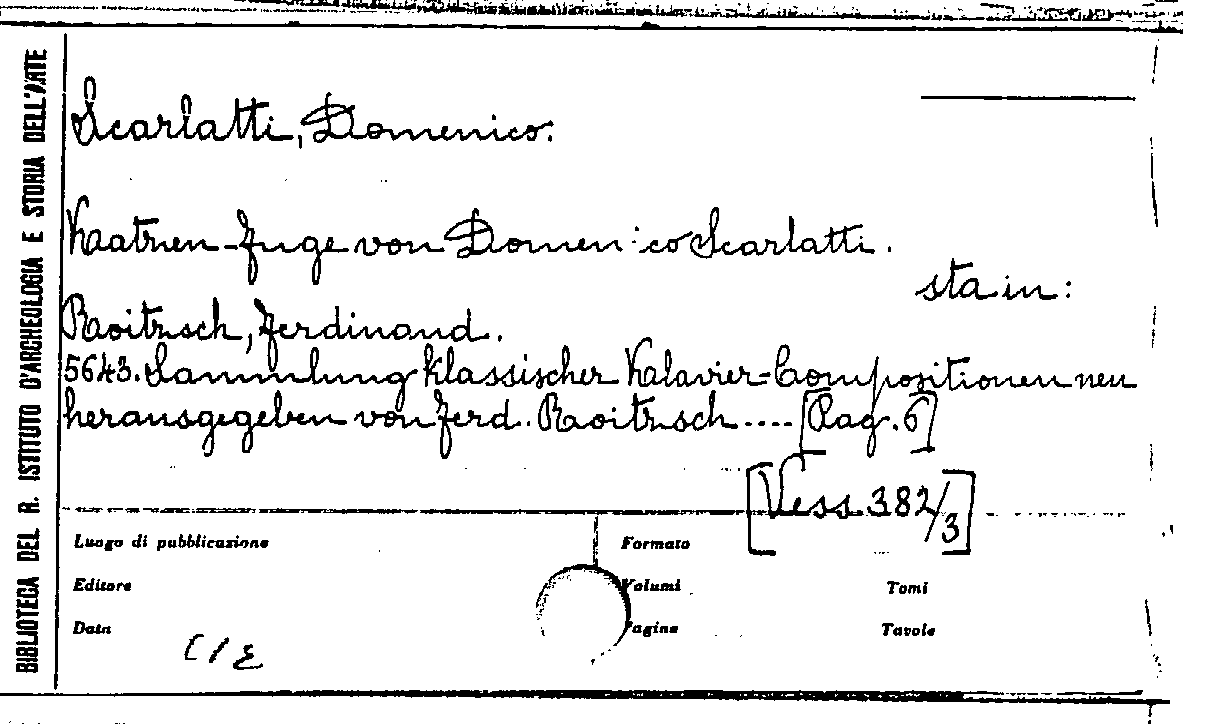 BIBLIOTECA DEL R. ISTITUTO D'ARCHEOLOGIA E STORIA DELL'ARTE
Scarlatti, Domenico.
Katzen-Fuge von Domenico Scarlatti.
sta in:
Roitzsch, Ferdinand.
5643. Sammlung klassischer Klavier-Compositionen neu
herausgegeben von Ferd. Roitzsch.... [Pag. 6]
[Vess. 382/3]
Luogo di pubblicazione
Formato
Editore
Volumi
Tomi
Data
Pagine
Tavole
C/E